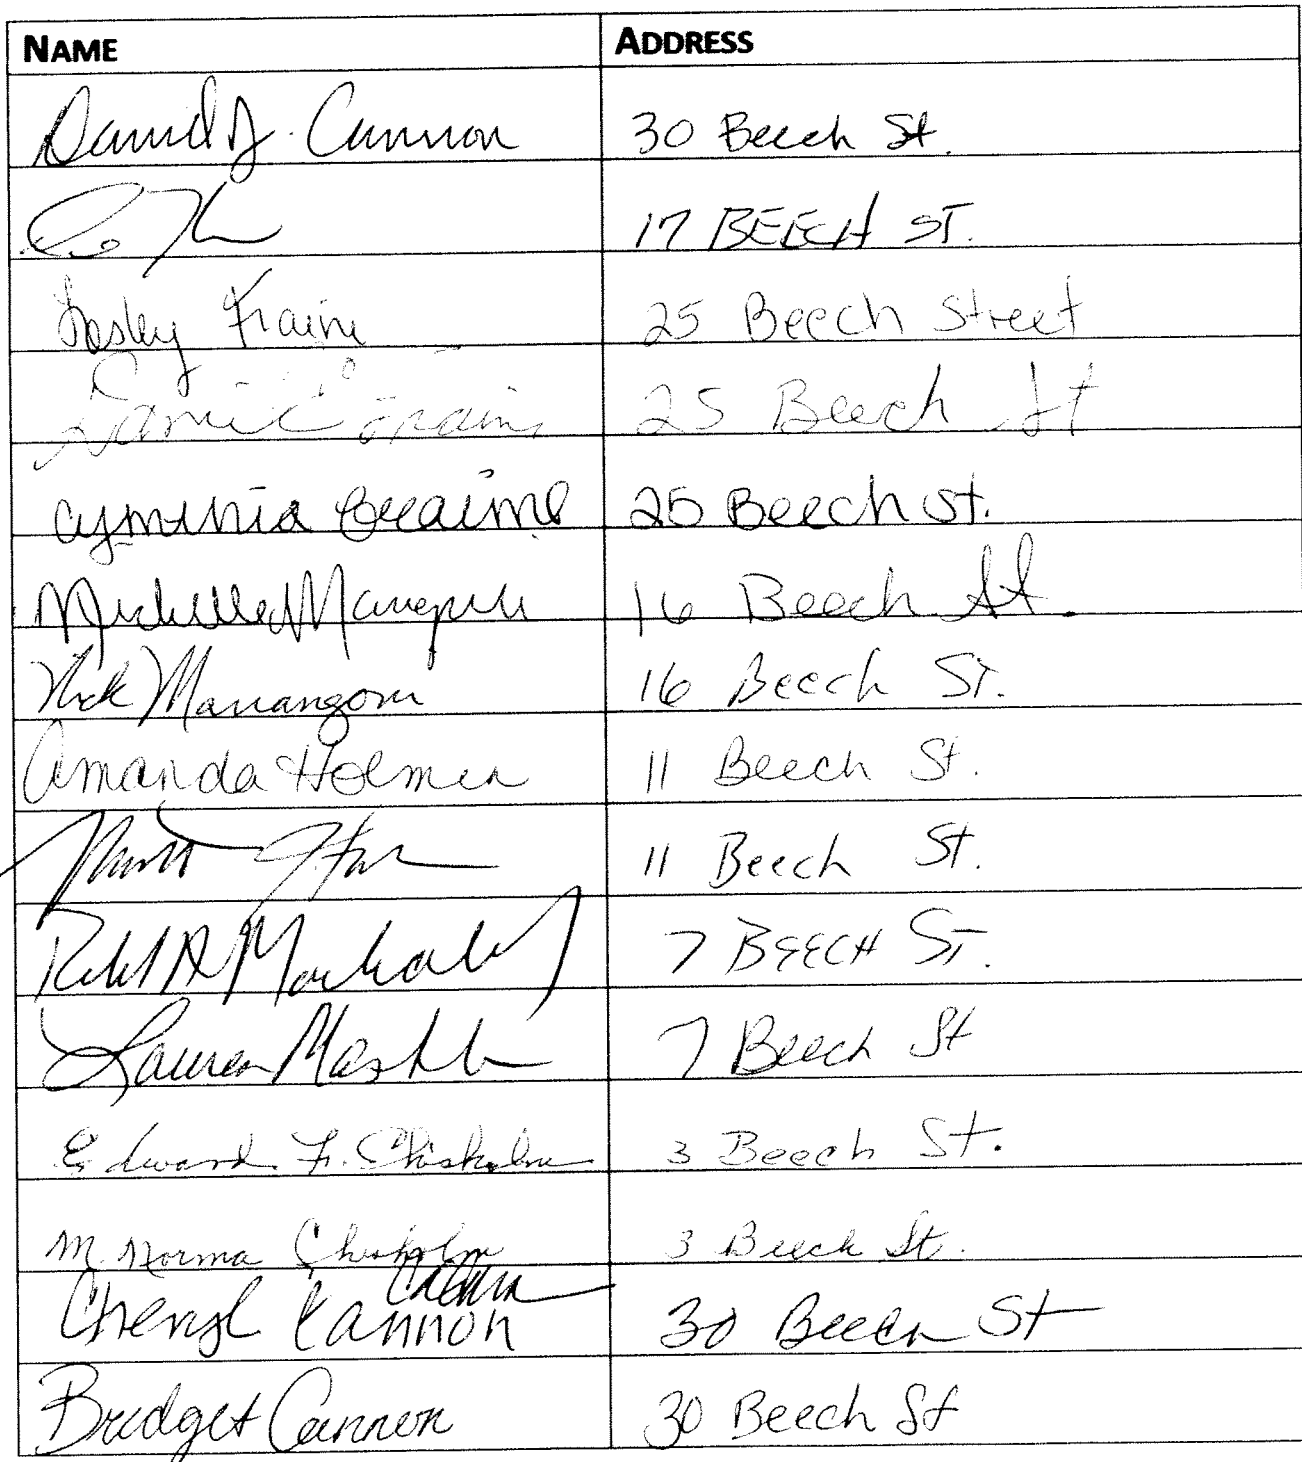 NAME ADDRESS
Daniel J. Cannon 30 Beech St.
17 BEECH ST.
Lesley Fraine 25 Beech Street
25 Beech St
Cynthia Fraine 25 Beech St.
Michelle 16 Beech St.
Nick Marrangoni 16 Beech St.
Amanda Holmen 11 Beech St.
11 Beech St.
7 BEECH ST.
Lauren 7 Beech St
Edward F. Chisholm 3 Beech St.
M. Norma Chisholm 3 Beech St.
Cheryl Cannon 30 Beech St
Bridget Cannon 30 Beech St